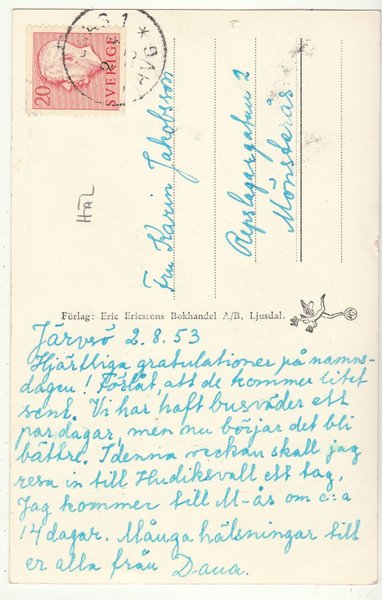 20
SVERIGE
AVG
HäL
Fru Karin Jakobsson
Repslagargatan 2
Mönsterås
Förlag: Eric Ericssons Bokhandel A/B, Ljusdal.
Järvsö 2.8.53
Hjärtliga gratulationer på namns-
dagen! Förlåt, att de kommer litet
sent. Vi har haft busväder ett
par dagar, men nu börjar det bli
bättre. I denna veckan skall jag
resa in till Hudiksvall ett tag.
Jag kommer till M-ås om c:a
14 dagar. Många hälsningar till
er alla från Dana.